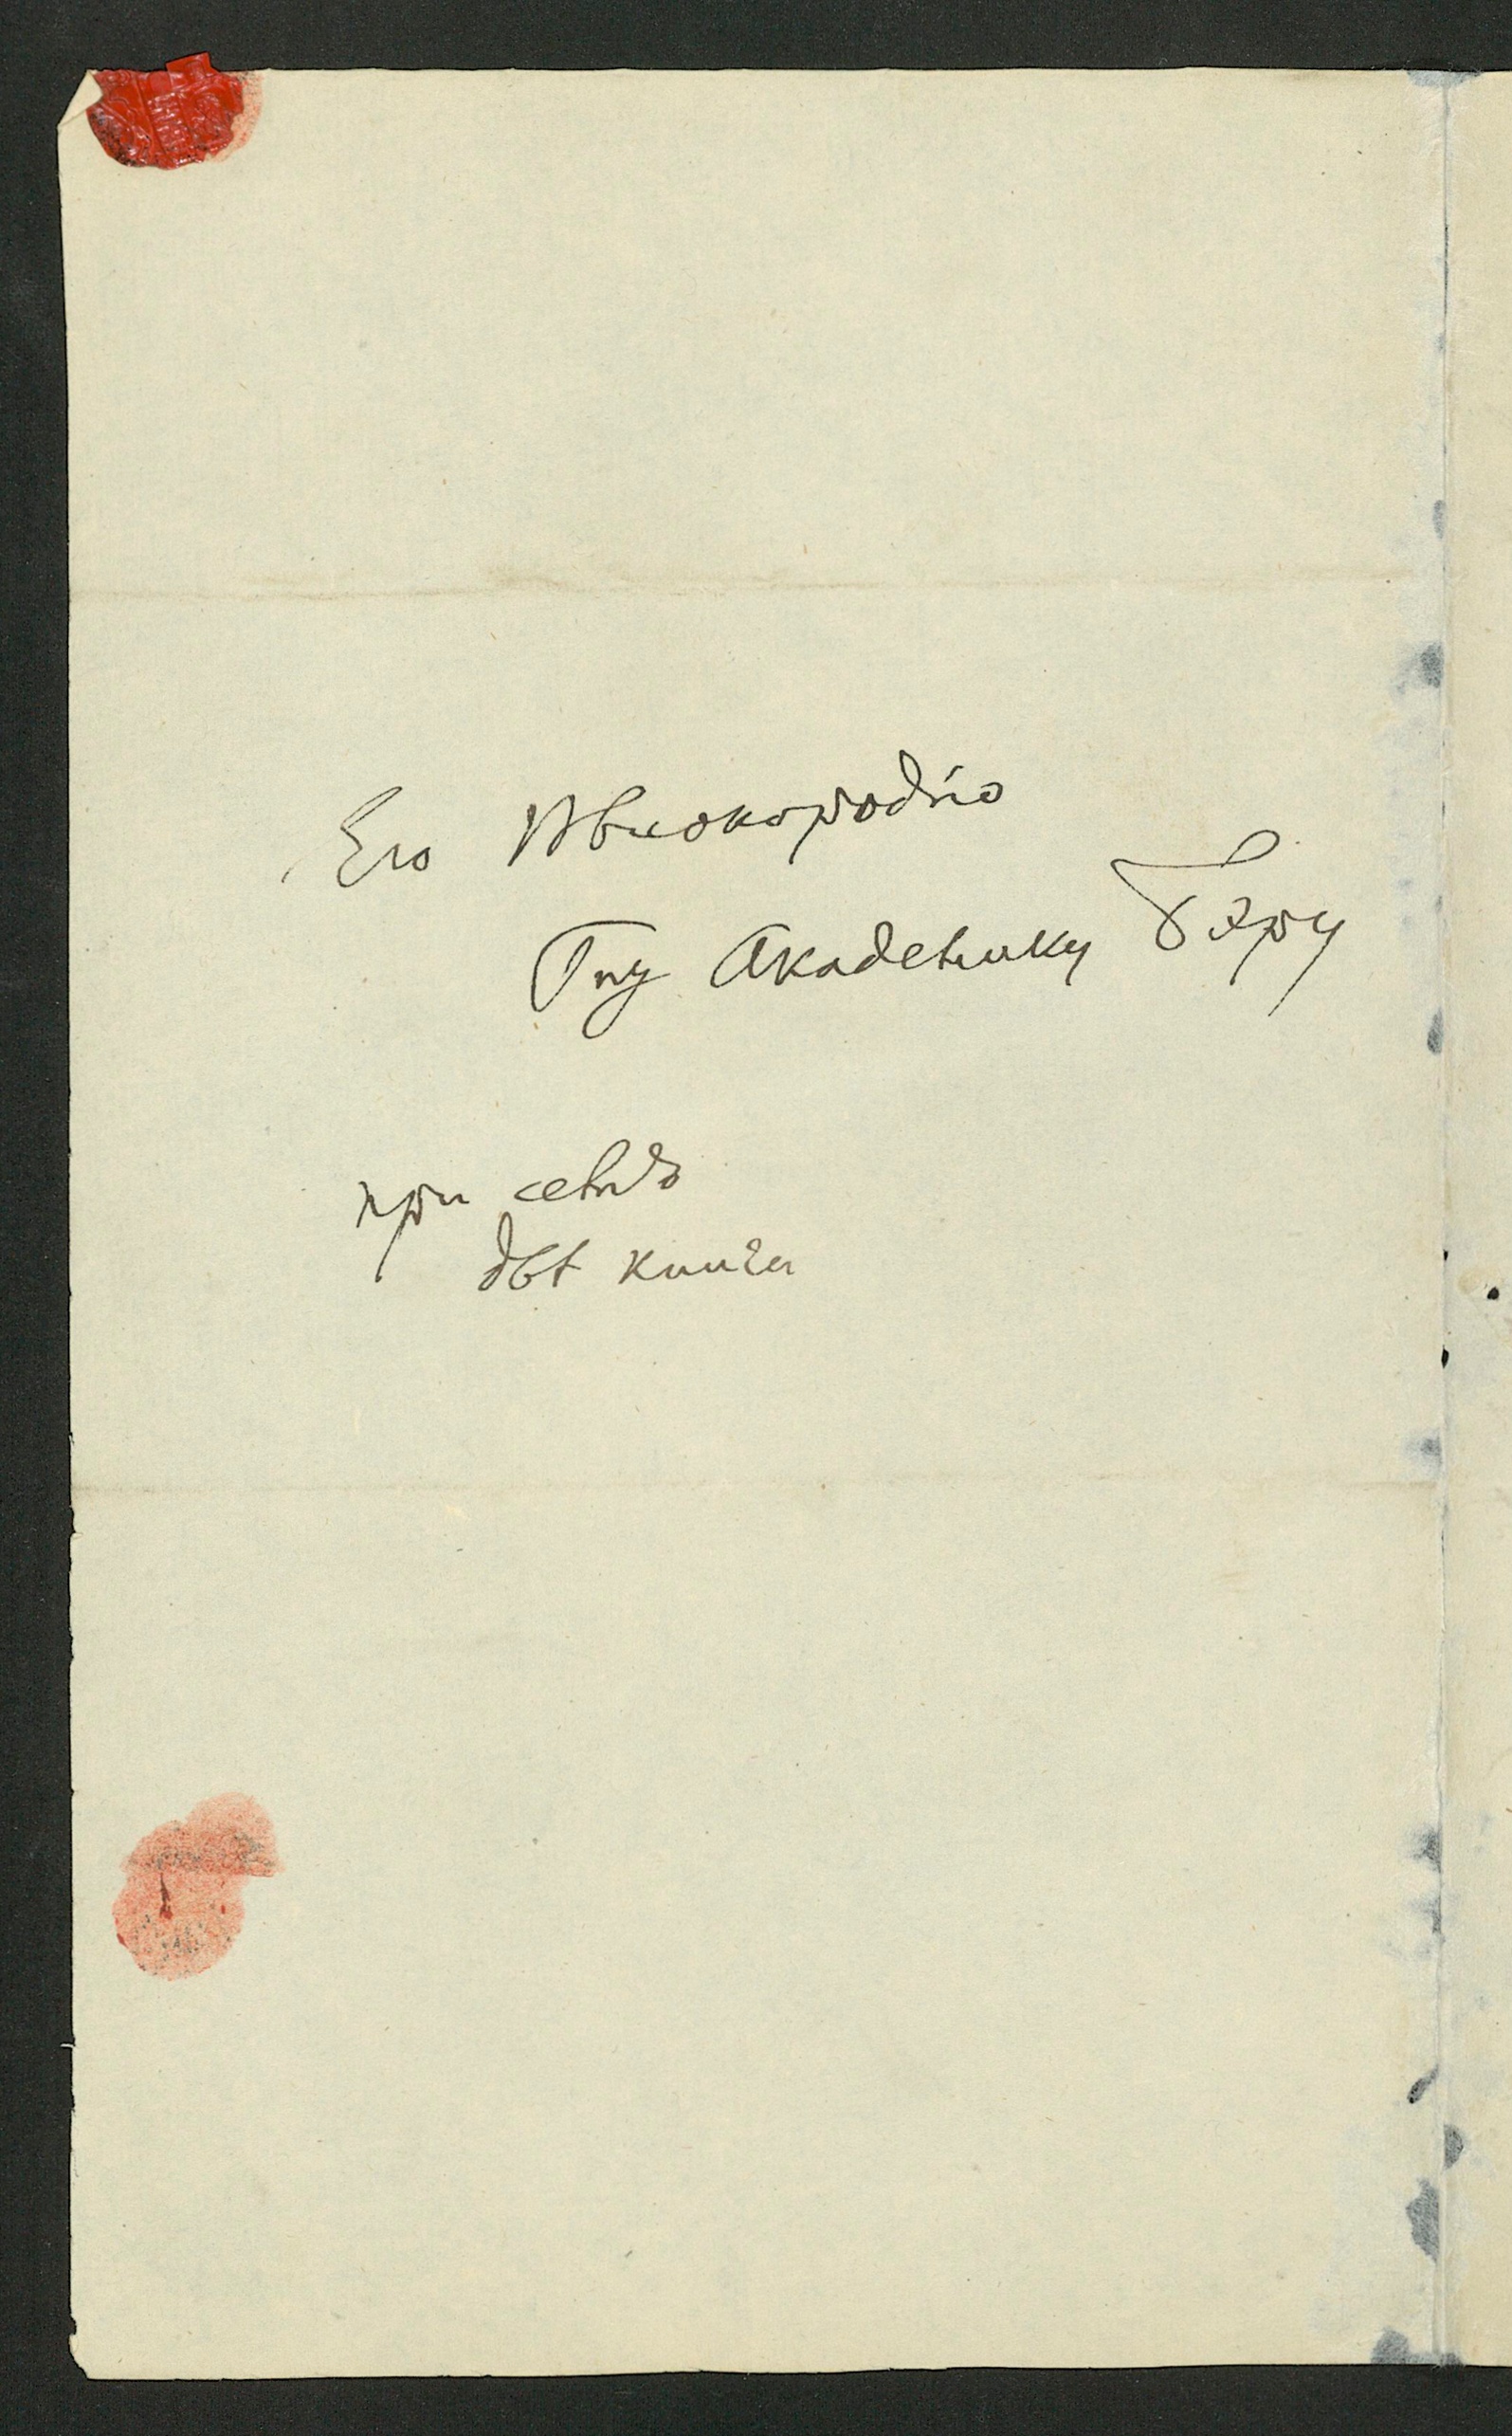 Его Высокородію
Гну Академику Бэру
при семъ
двѣ книги